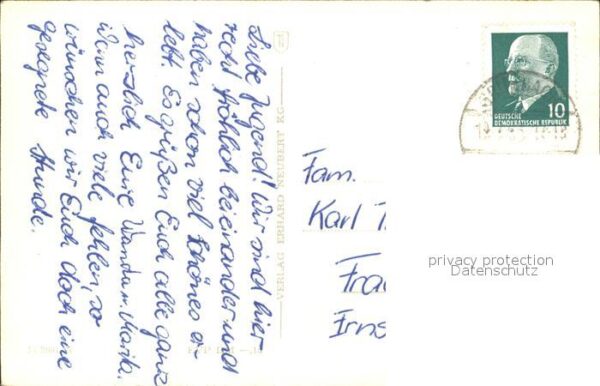 Liebe Jugend! Wir sind hier
recht fröhlich beieinander und
haben schon viel Schönes er-
lebt. Es grüßen Euch alle ganz
herzlich Eure Wanda u. Marita.
Wenn auch viele fehlen so
wünschen wir Euch doch eine
gesegnete Stunde.
VERLAG ERHARD NEUBERT KG
10
DEUTSCHE
DEMOKRATISCHE REPUBLIK
Fam.
Karl
privacy protection
Datenschutz